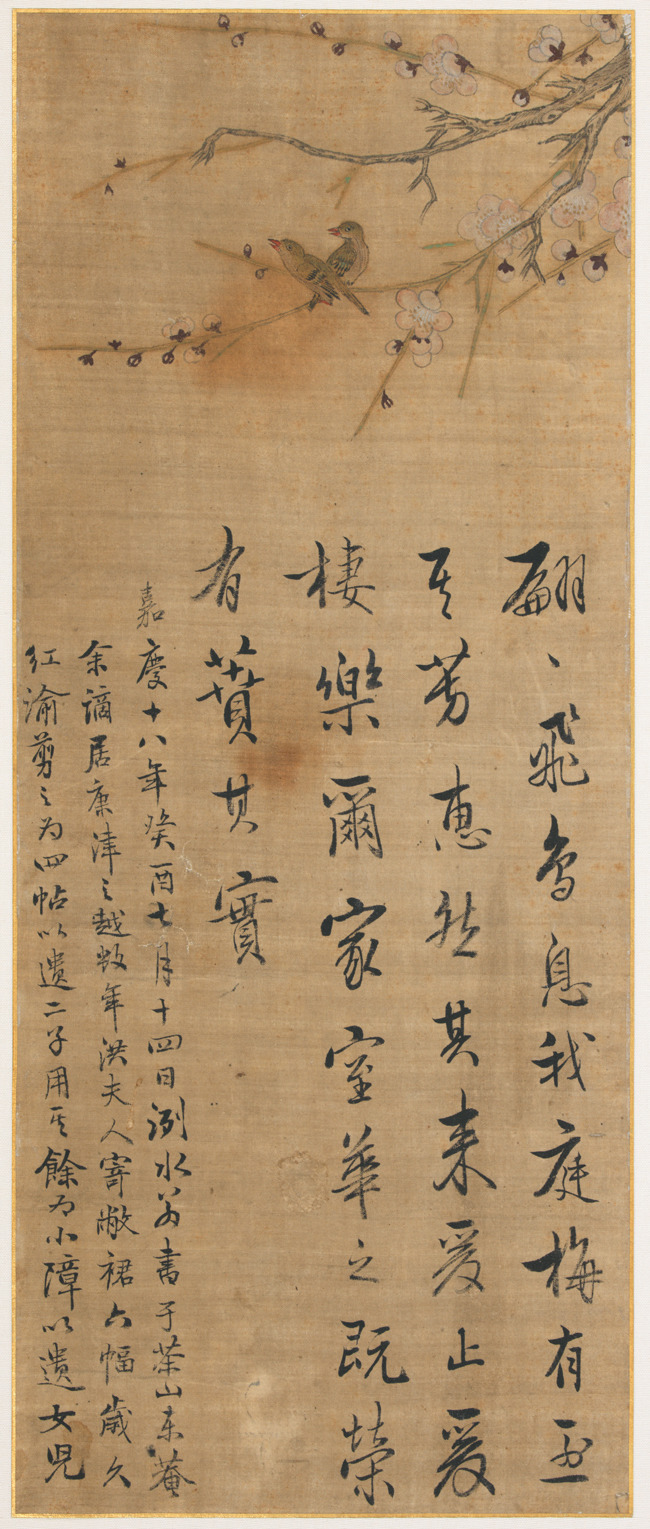 翩〻飛鳥息我庭梅有烈
其芳惠然其来爰止爰
棲樂爾家室華之既榮
有蕡其實
嘉慶十八年癸酉七月十四日洌水翁書于茶山東菴
余謫居康津之越數年洪夫人寄敝裙六幅歲久
紅渝剪之为四帖以遺二子用其餘为小障以遺女兒